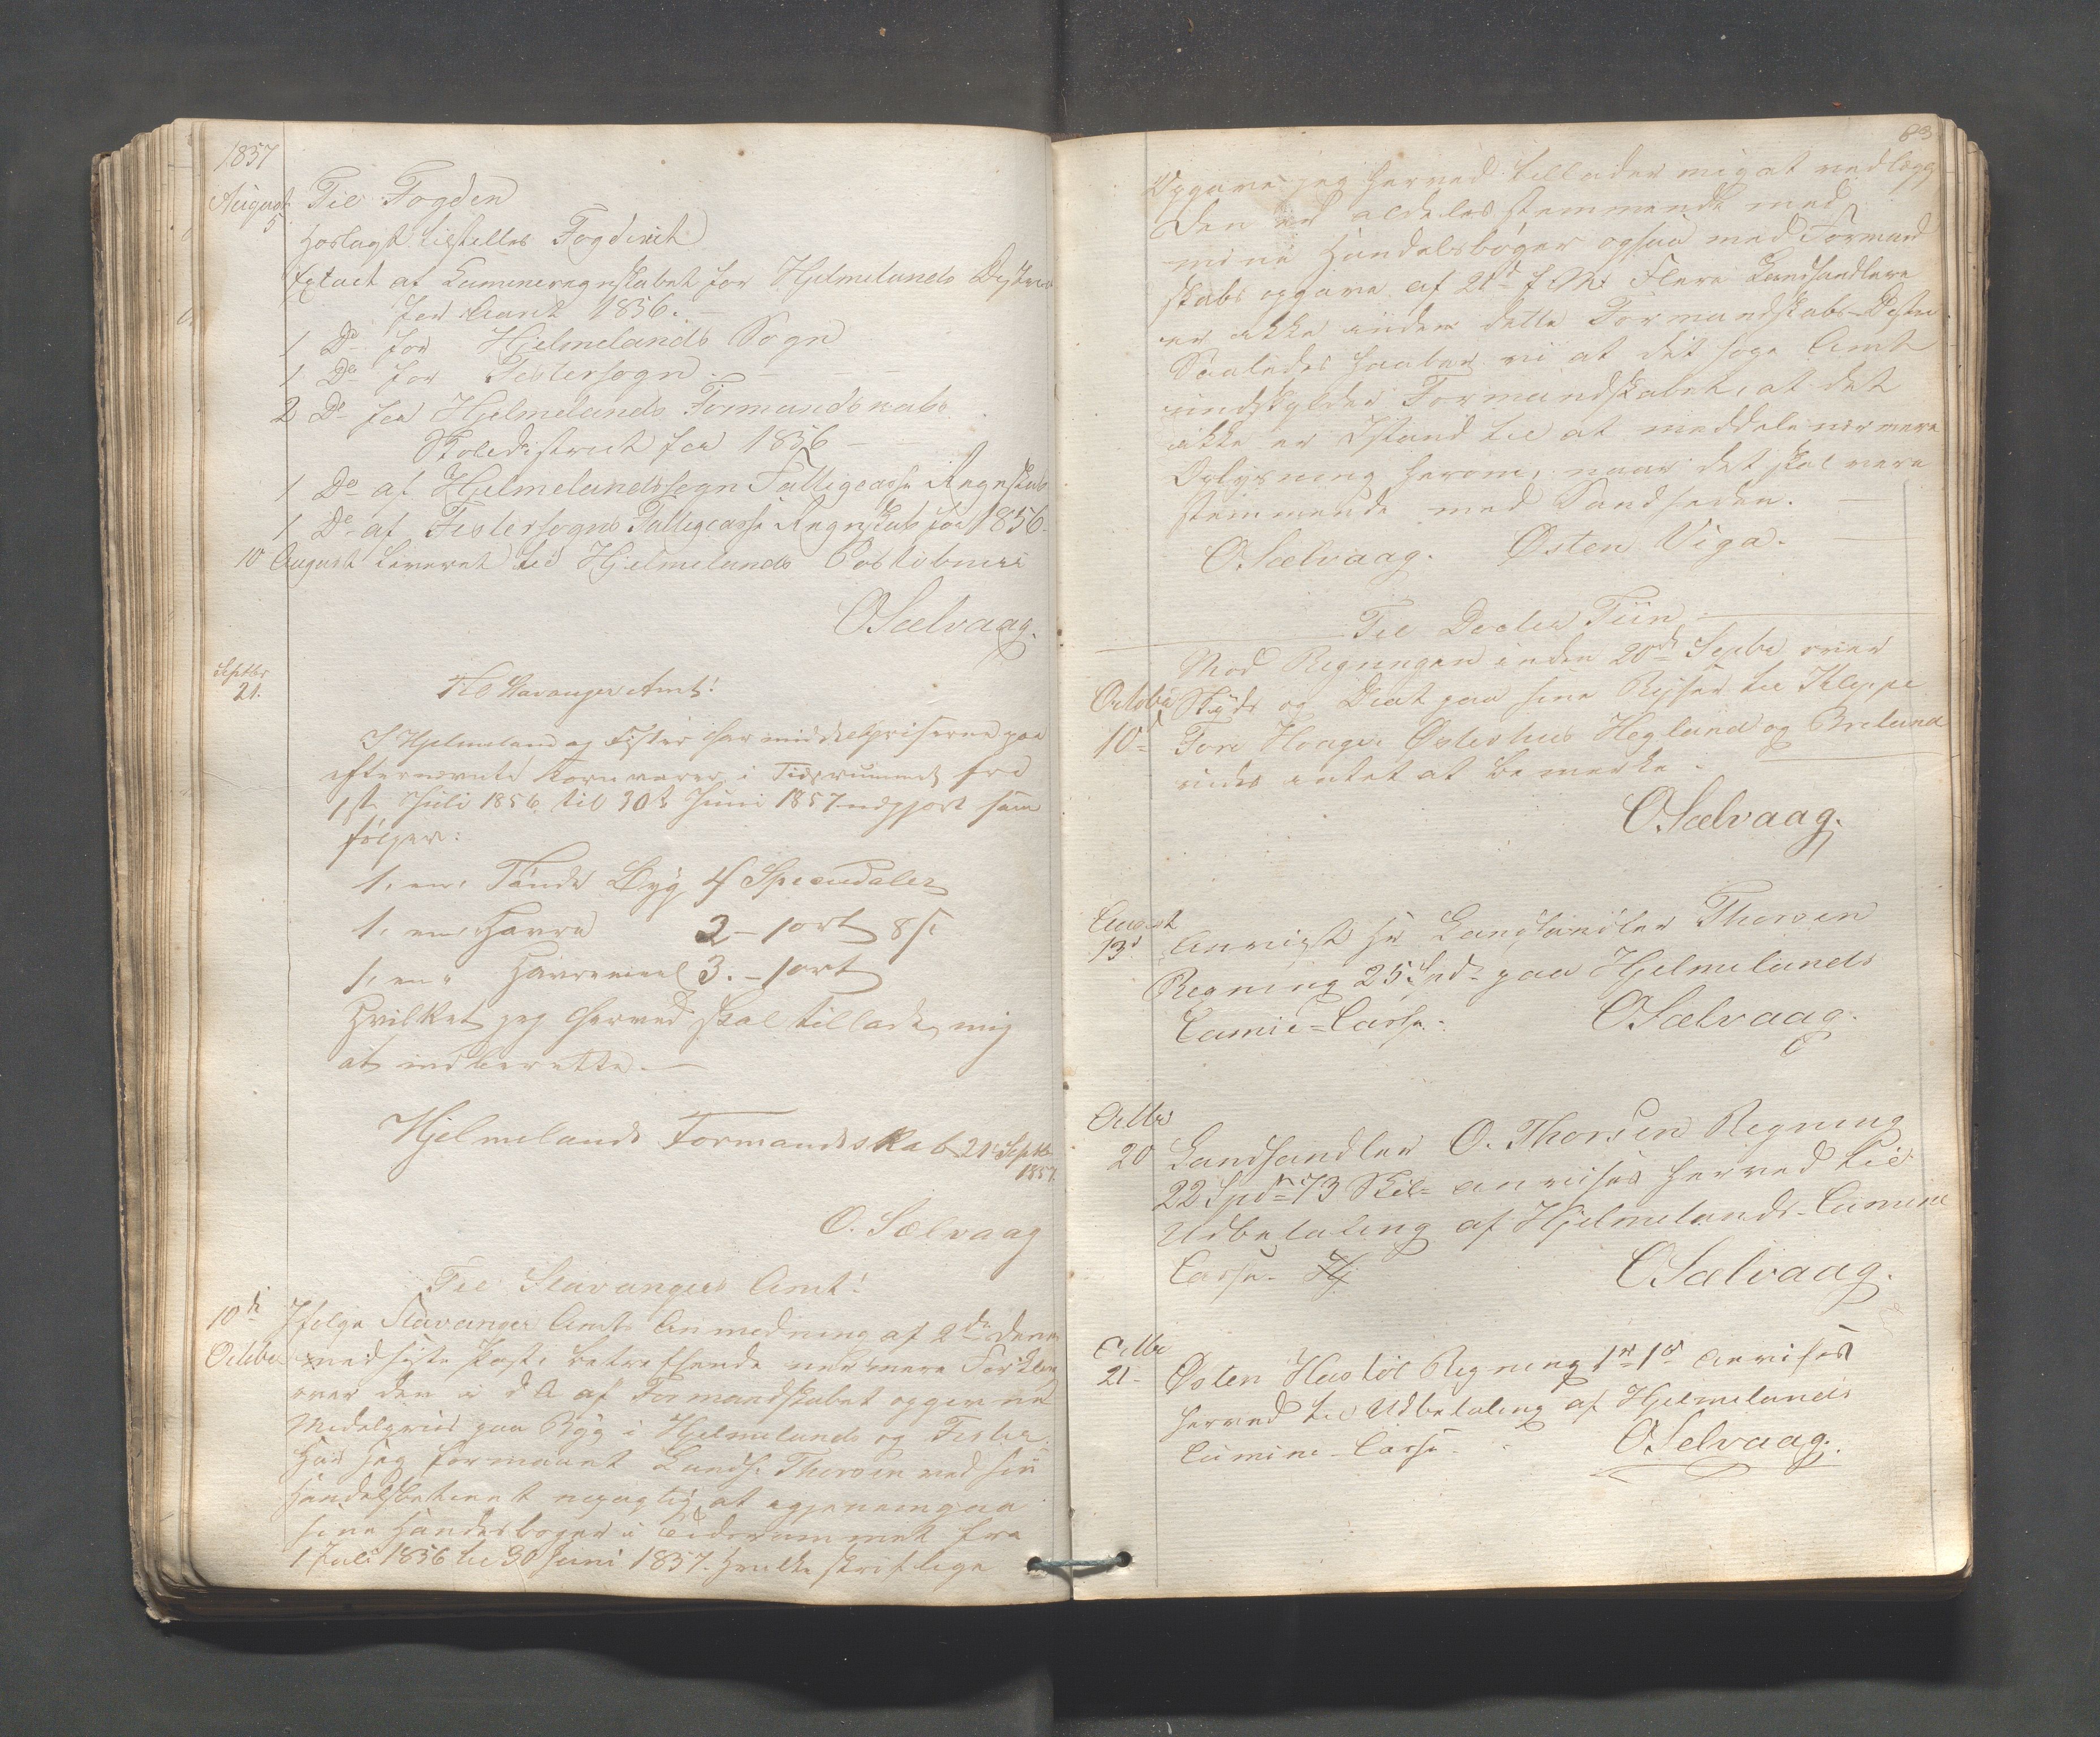 1857
August 5
Til Fogden
Hoslagt tilstilles Fogderiet
Extract af Commeregnskabet for Hjelmelands Distrect
for Aaret 1856. -
1 Do for Hjelmelands Sogn
1 Do for Fistersogn -
2 Do for Hjelmelands Formandskabs
Skoledistrict for 1856 -
1 Do af Hjelmelandssogn Fattigcasse Regnskab
1 Do af Fistersogns Fattigcasse Regnskab for 1856.
10 August Leveret til Hjelmelands Postaabneri
O Sælvaag.
Septbr 21.
Til Stavanger Amt!
I Hjelmeland og Fister har middelpriserne paa
efternævnte Kornvarer i Tidsrummet fra
1ste Juli 1856 til 30te Juni 1857 udgjort som
følger:
1, en, Tønde Byg 4 Speciedaler
1, en, Havre 2 - 1 ort 8 s
1, en " Havremeel 3. - 1 ort
Hvilket jeg herved skal tillade mig
at indberette. -
Hjelmelands Formandskab 21 Septbr
1857.
O. Sælvaag
Til Stavangers Amt!
10de October
Ifølge Stavanger Amts Anmodning af 2den dennes
med sidste Post, betræffende nærmere Forklaring
over den i d A af Formandskabet opgivne
Medelpris paa Byg i Hjelmelands og Fister.
Har jeg formaaet Landh. Thorsen ved sin
Handelsbetient nøyagtig at igjennemgaa
sine Handelsbøger i Tidsrummet fra
1 Juli 1856 til 30 Juni 1857. Hvilke skriftlige
83
Opgave jeg herved tillader mig at vedlægge
Den er aldeles stemmende med
mine Handelsbøger ogsaa med Formand
skabs opgave af 21de f. M. Flere Landhandlere
er ikke inden dette Formandskabs-Distrikt
Saaledes haaber vi at det høye Amt
undskylder Formandskabet, at det
ikke er Istand til at meddele nærmere
Oplysning herom, naar det skal være
stemmende med Sandheden. -
O. Sælvaag. Østen Viga. -
Til Docter Tiin
October 10de
Mod Regningen inden 20de Septbr over
Skyds og Diæt paa sine Rejser til Kleppe
Tore Hauge Østerhus Hegland og Breland
vides intet at bemerke.
O. Sælvaag.
August 13de
Anvist Hr Landhandler Thorsen
Regning 25 Spd. paa Hjelmelands
Comune-Casse.
O Sælvaag.
Octbr 20
Landhandler O. Thorsen Regning
22 Spd 73 Skil anvises herved til
Udbetaling af Hjelmelands-Comune
Casse.
O Sælvaag.
Octbr 21.
Østen Hastøl Regning anvises
herved til Udbetaling af Hjelmelands
Comune-Casse
O Selvaag.